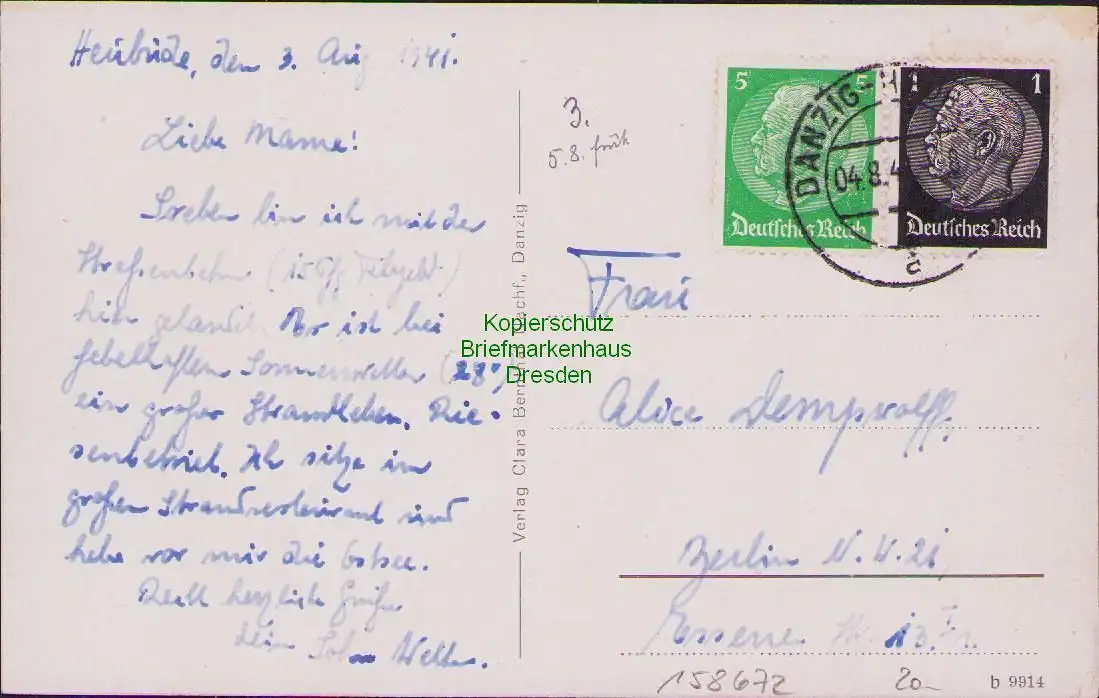 Heubude, den 3. Aug 1941.
Liebe Mama!
Soeben bin ich mit der
Straßenbahn (15 Pfg
hier gelandet. Es ist bei
fabelhaftem Sonnenwetter (28°)
ein großes Strandleben. Rie-
senbetrieb. Ich sitze im
großen Strandrestaurant und
habe vor mir die Ostsee.
Recht herzliche Grüße
dein Sohn
Verlag Clara Bernthal Nachf., Danzig
3.
5.8. früh
5
5
Deutsches Reich
1
1
Deutsches Reich
DANZIG-H
04.8.4
c
Frau
Alice Dempwolff
Berlin N.W. 21
Essener Str. 13
Kopierschutz
Briefmarkenhaus
Dresden
158672
20-
b 9914